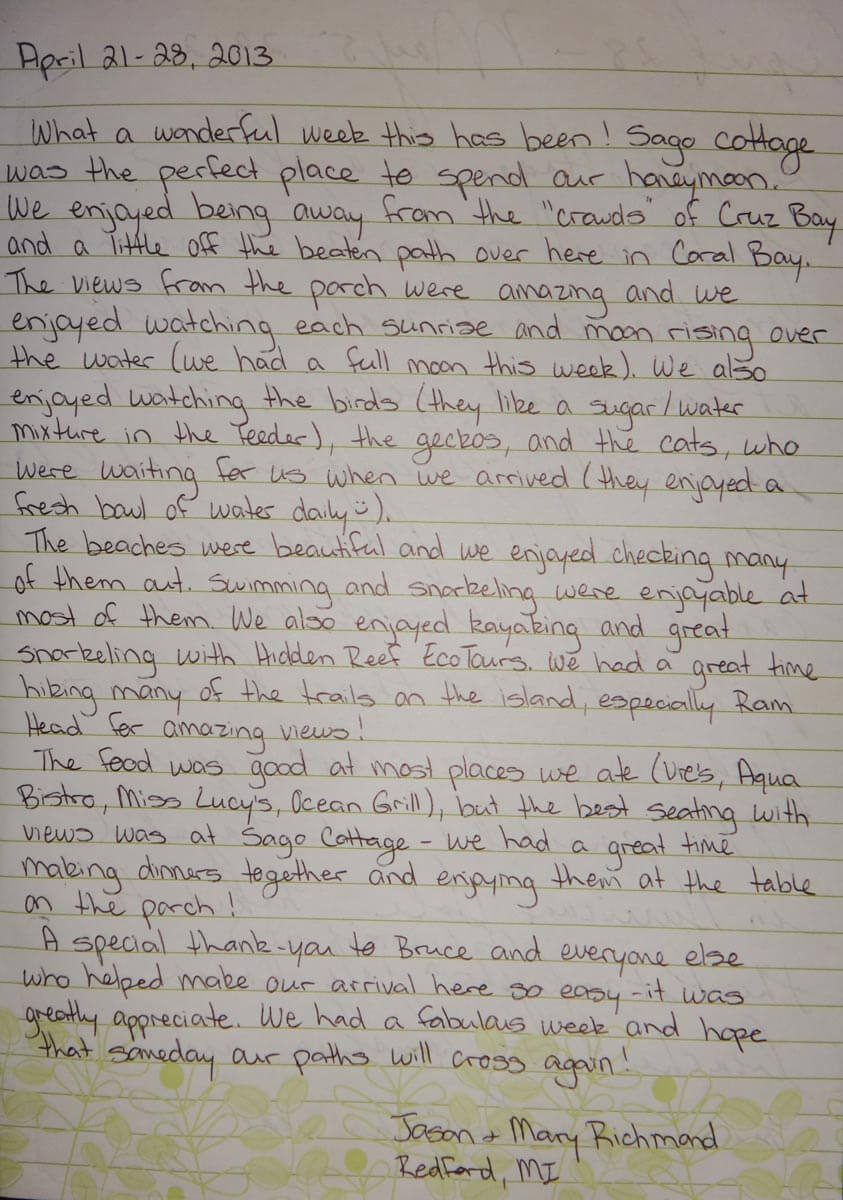 April 21-28, 2013
What a wonderful week this has been! Sago Cottage
was the perfect place to spend our honeymoon.
We enjoyed being away from the "crowds" of Cruz Bay
and a little off the beaten path over here in Coral Bay.
The views from the porch were amazing and we
enjoyed watching each sunrise and moon rising over
the water (we had a full moon this week). We also
enjoyed watching the birds (they like a sugar/water
mixture in the feeder), the geckos, and the cats, who
were waiting for us when we arrived (they enjoyed a
fresh bowl of water daily :)).
The beaches were beautiful and we enjoyed checking many
of them out. Swimming and snorkeling were enjoyable at
most of them. We also enjoyed kayaking and great
snorkeling with Hidden Reef EcoTours. We had a great time
hiking many of the trails on the island, especially Ram
Head for amazing views!
The food was good at most places we ate (Vie's, Aqua
Bistro, Miss Lucy's, Ocean Grill), but the best seating with
views was at Sago Cottage - we had a great time
making dinners together and enjoying them at the table
on the porch!
A special thank-you to Bruce and everyone else
who helped make our arrival here so easy - it was
greatly appreciate. We had a fabulous week and hope
that someday our paths will cross again!
Jason + Mary Richmond
Redford, MI